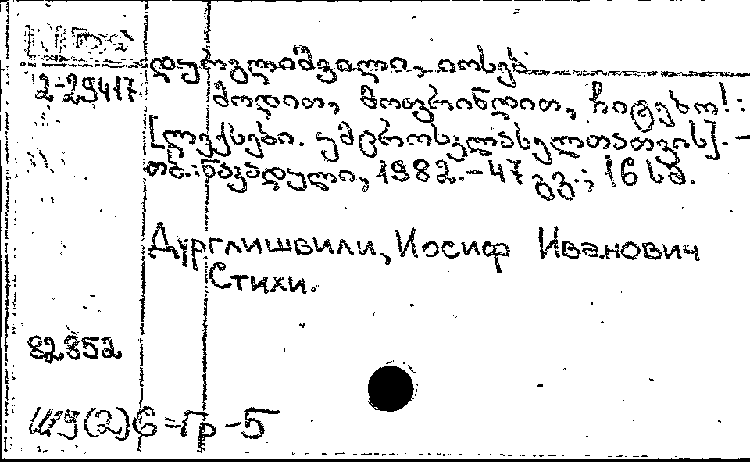 დურგლიშვილი, იოსებ
2-29417
მოდით, მოფრინდით, ჩიტებო!:
[ლექსები. უმცროსკლასელთათვის]. –
თბ.: ნაკადული, 1982. – 47 გვ.; 16 სმ.
Дурглишвили, Иосиф Иванович
Стихи.
82852
Ш9(2)6=Гр-5